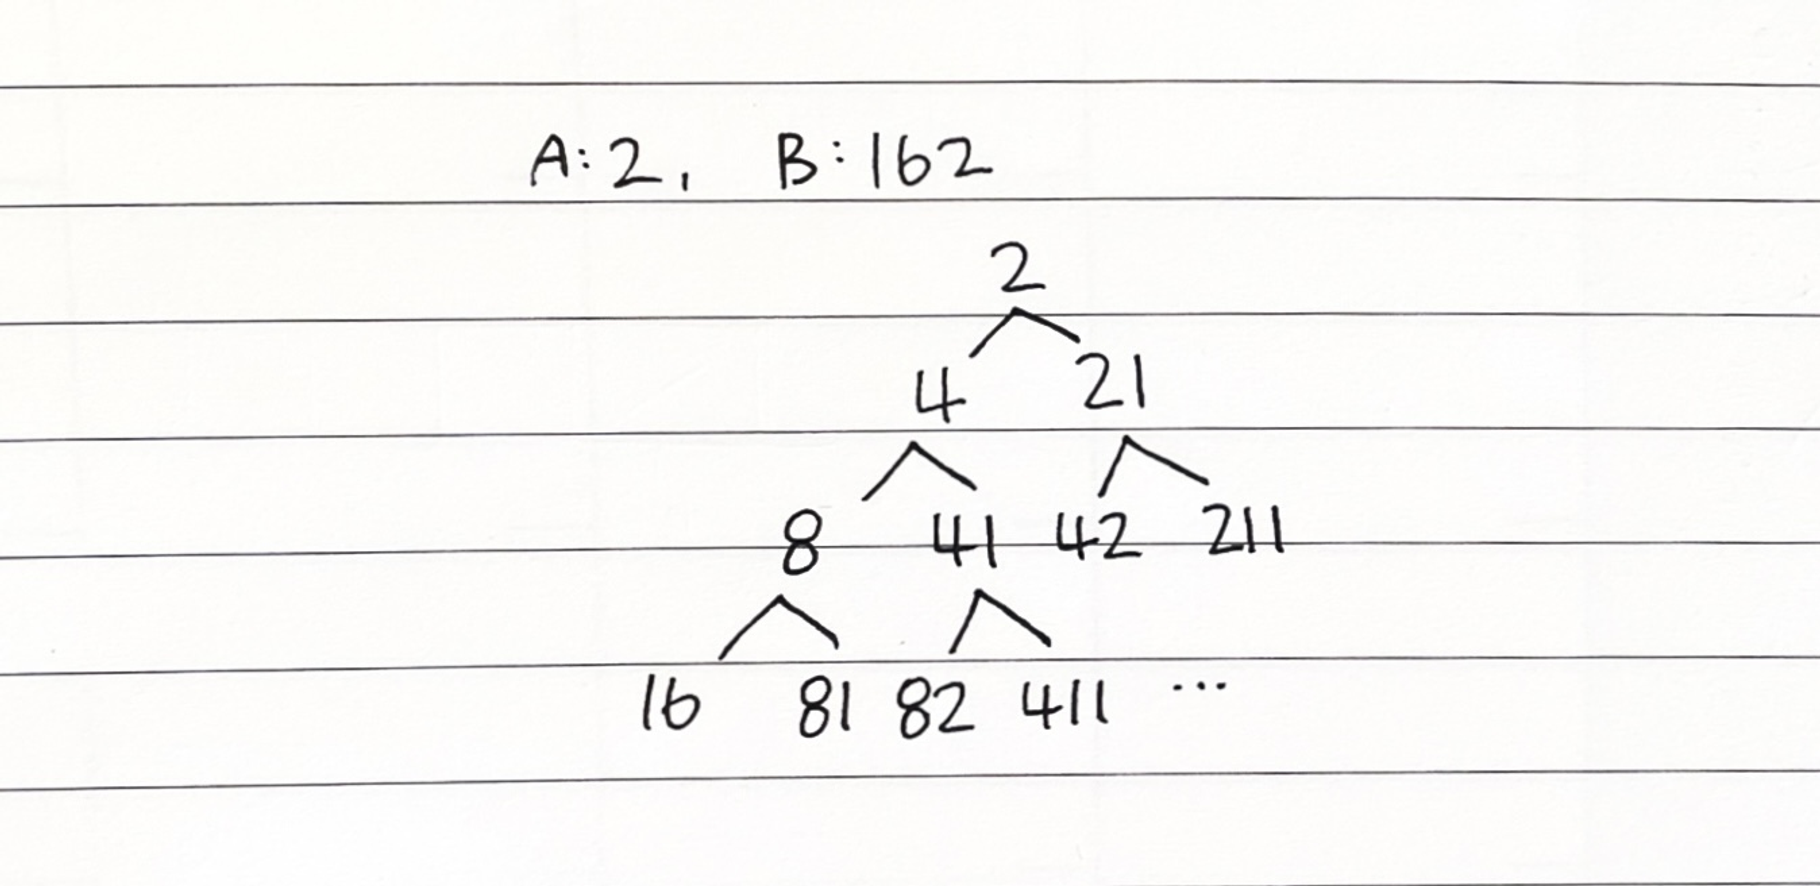 A:2, B:162
2
4 21
8 41 42 211
16 81 82 411 ...